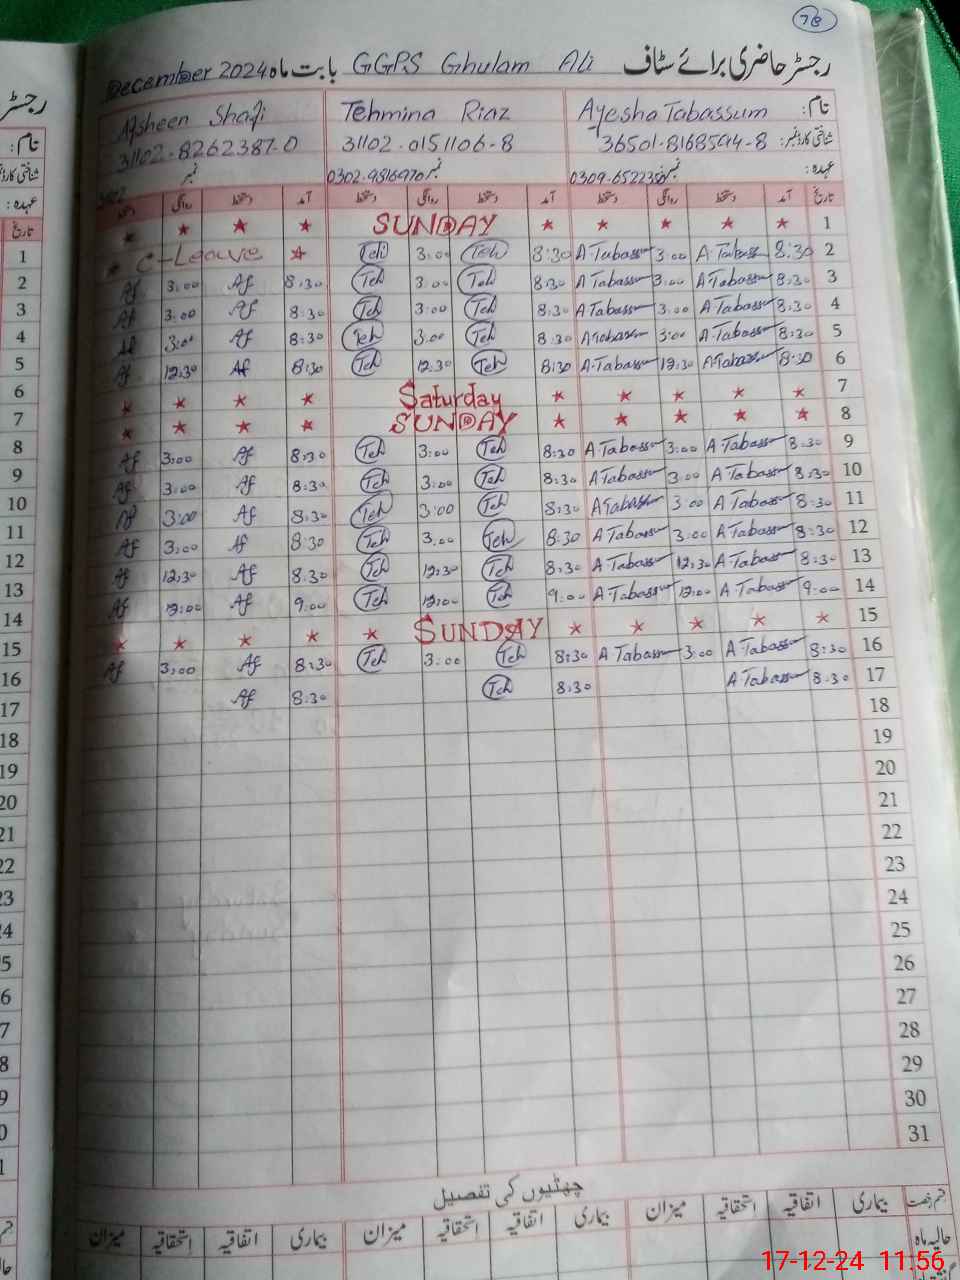 78
رجسٹر حاضری برائے سٹاف GGPS Ghulam Ali بابت ماہ December 2024
نام: Ayesha Tabassum Tehmina Riaz Afsheen Shafi
شناختی کارڈ نمبر: 36501-8168594-8 31102-0151106-8 31102-8262387-0
عہدہ: نمبر 0309-6522350 نمبر 0302-9816970 نمبر
تاریخ آمد دستخط روانگی دستخط آمد دستخط روانگی دستخط آمد دستخط روانگی دستخط
1 SUNDAY
2 8:30 A.Tabassum 3:00 A.Tabassum 8:30 Teh 3:00 Teh C-Leave
3 8:30 A.Tabassum 3:00 A.Tabassum 8:30 Teh 3:00 Teh 8:30 Af 3:00 Af
4 8:30 A.Tabassum 3:00 A.Tabassum 8:30 Teh 3:00 Teh 8:30 Af 3:00 Af
5 8:30 A.Tabassum 3:00 A.Tabassum 8:30 Teh 3:00 Teh 8:30 Af 3:00 Af
6 8:30 A.Tabassum 12:30 A.Tabassum 8:30 Teh 12:30 Teh 8:30 Af 12:30 Af
7 Saturday
8 SUNDAY
9 8:30 A.Tabassum 3:00 A.Tabassum 8:30 Teh 3:00 Teh 8:30 Af 3:00 Af
10 8:30 A.Tabassum 3:00 A.Tabassum 8:30 Teh 3:00 Teh 8:30 Af 3:00 Af
11 8:30 A.Tabassum 3:00 A.Tabassum 8:30 Teh 3:00 Teh 8:30 Af 3:00 Af
12 8:30 A.Tabassum 3:00 A.Tabassum 8:30 Teh 3:00 Teh 8:30 Af 3:00 Af
13 8:30 A.Tabassum 12:30 A.Tabassum 8:30 Teh 12:30 Teh 8:30 Af 12:30 Af
14 9:00 A.Tabassum 12:00 A.Tabassum 9:00 Teh 12:00 Teh 9:00 Af 12:00 Af
15 SUNDAY
16 8:30 A.Tabassum 3:00 A.Tabassum 8:30 Teh 3:00 Teh 8:30 Af 3:00 Af
17 8:30 A.Tabassum 8:30 Teh 8:30 Af
18
19
20
21
22
23
24
25
26
27
28
29
30
31
چھٹیوں کی تفصیل
قسم رخصت بیماری اتفاقیہ استحقاقیہ میزان بیماری اتفاقیہ استحقاقیہ میزان بیماری اتفاقیہ استحقاقیہ میزان
حالیہ ماہ
17-12-24 11:56